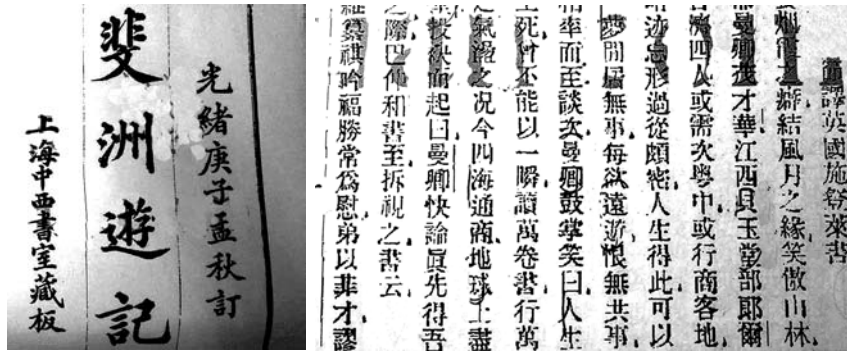 光緒庚子孟秋訂
斐洲遊記
上海中西書室藏板
譯英國施登萊書
烟霞之癖結風月之緣笑傲山林
曼卿茂才華江西貝玉堂部郎爾
濟四人或需次粵中或行商客地
迹忘形過從頗密人生得此可以
夢閒居無事每欲遠游恨無共事
相率而至談次曼卿鼓掌笑曰人生
死曾不能以一瞬讀萬卷書行萬
氣之况今四海通商地球上盡
投袂而起曰曼卿快論眞先得吾
之際巴仲和書至拆視之書云
纂祺吟福勝常爲慰弟以菲才謬